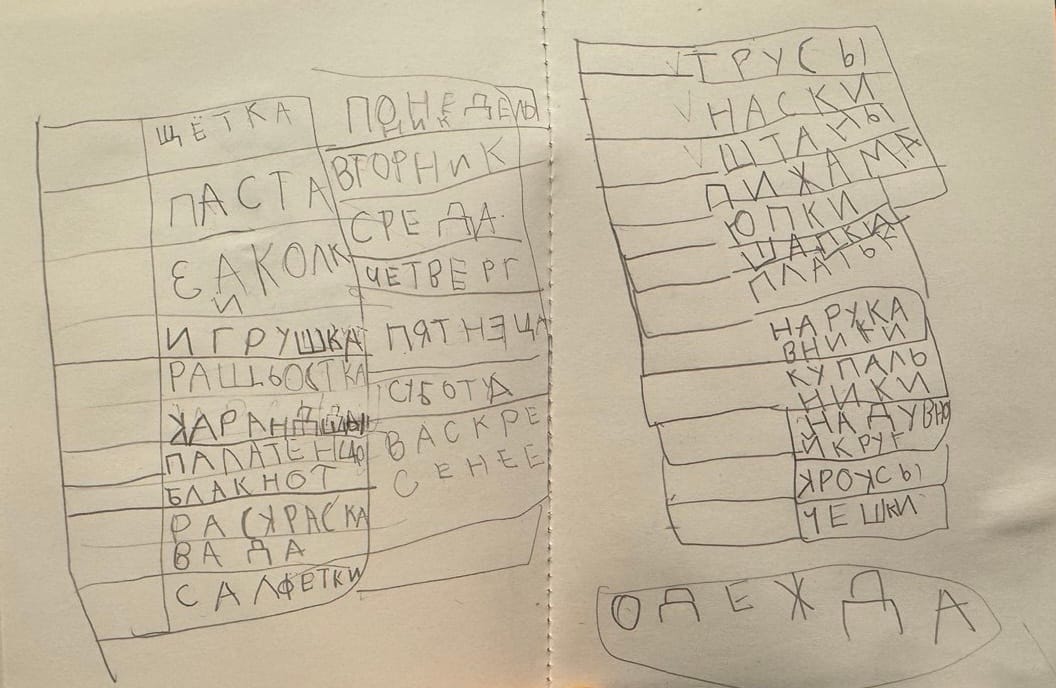 ЩЁТКА
ПАСТА
ЗАКОЛК
И
ИГРУШКА
КАРАНДАШЫ
ПАЛАТЕНЦО
БЛАКНОТ
РАСКРАСКА
ВАДА
САЛФЕТКИ
ПОНЕДЕЛЬ
НИК
ВТОРНИК
СРЕДА
ЧЕТВЕРГ
ПЯТНЕЦА
СУБОТА
ВАСКРЕ
СЕНЕЕ
ТРУСЫ
НАСКИ
ШТАНЫ
ПИЖАМА
ЮПКИ
ШАПКА
ПЛАТЬЕ
НАРУКА
ВНИКИ
КУПАЛЬ
НИКИ
НАДУВНО
Й КРУГ
КРОКСЫ
ЧЕШКИ
ОДЕЖДА